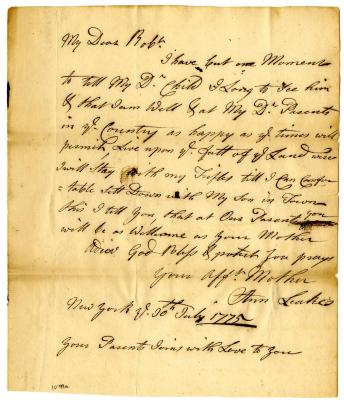 My Dear Robt.
I have but one Moment
to tell My Dr. Child I Long to See him
& that I am Well & at My Dr. Parents
in ye. Country as happy as ye times will
permit, Live upon ye. fatt of ye Land where
I will Stay with my Sisters till I Can Comfor=
=table Sett Down with My Son in Town
this I tell You, that at Our Parents you
will be as Wellcome as Your Mother
Adieu God Bless & protect you prays
Your Afft. Mother
Ann Leake
New York ye. 30th July 1775
Your Parents Joins with Love to you